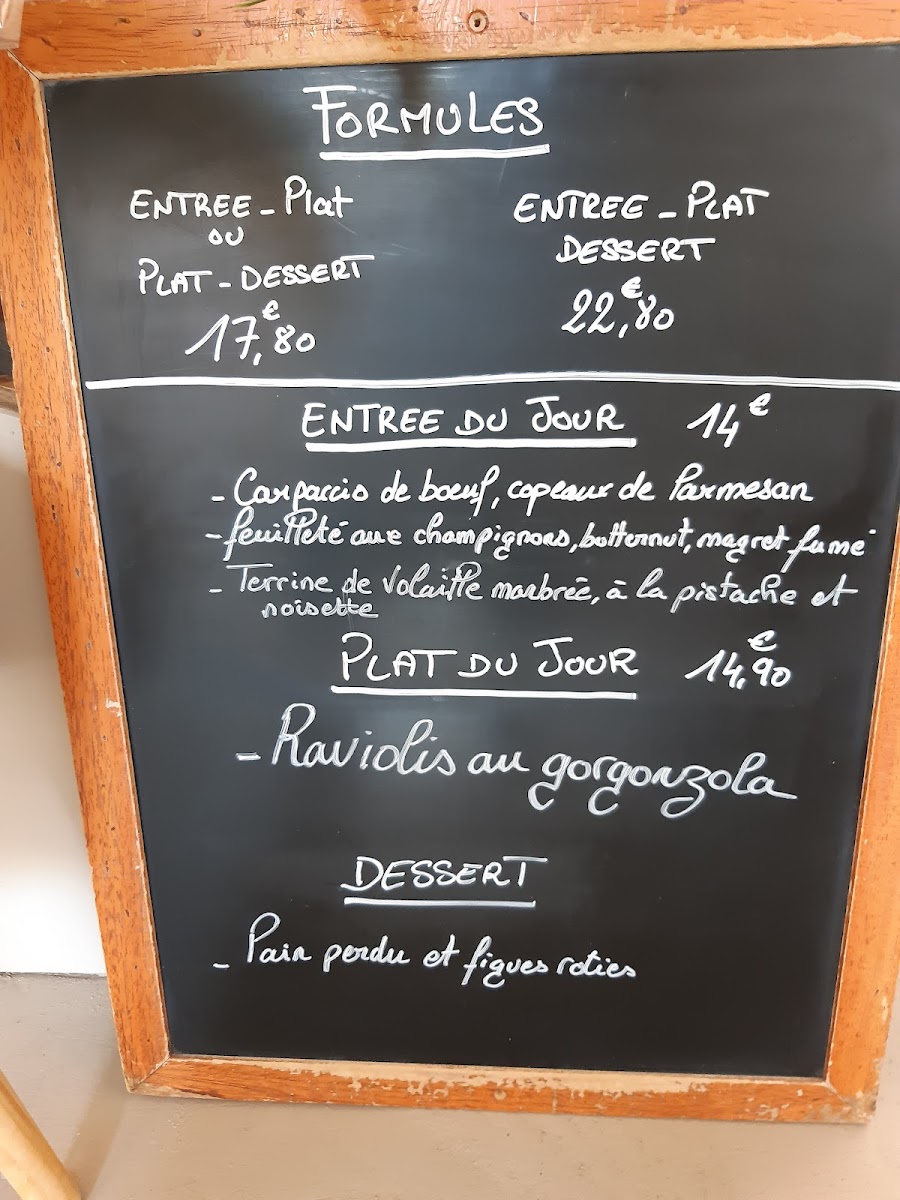 FORMULES
ENTREE - Plat
OU
PLAT - DESSERT
17,80€
ENTREE - PLAT
DESSERT
22,80€
ENTREE DU JOUR 14€
- Carparcio de boeuf, copeaux de Parmesan
- feuilleté aux champignons, butternut, magret fumé
- Terrine de Volaille marbrée, à la pistache et
noisette
PLAT DU JOUR 14,90€
- Raviolis au gorgonzola
DESSERT
- Pain perdu et figues roties